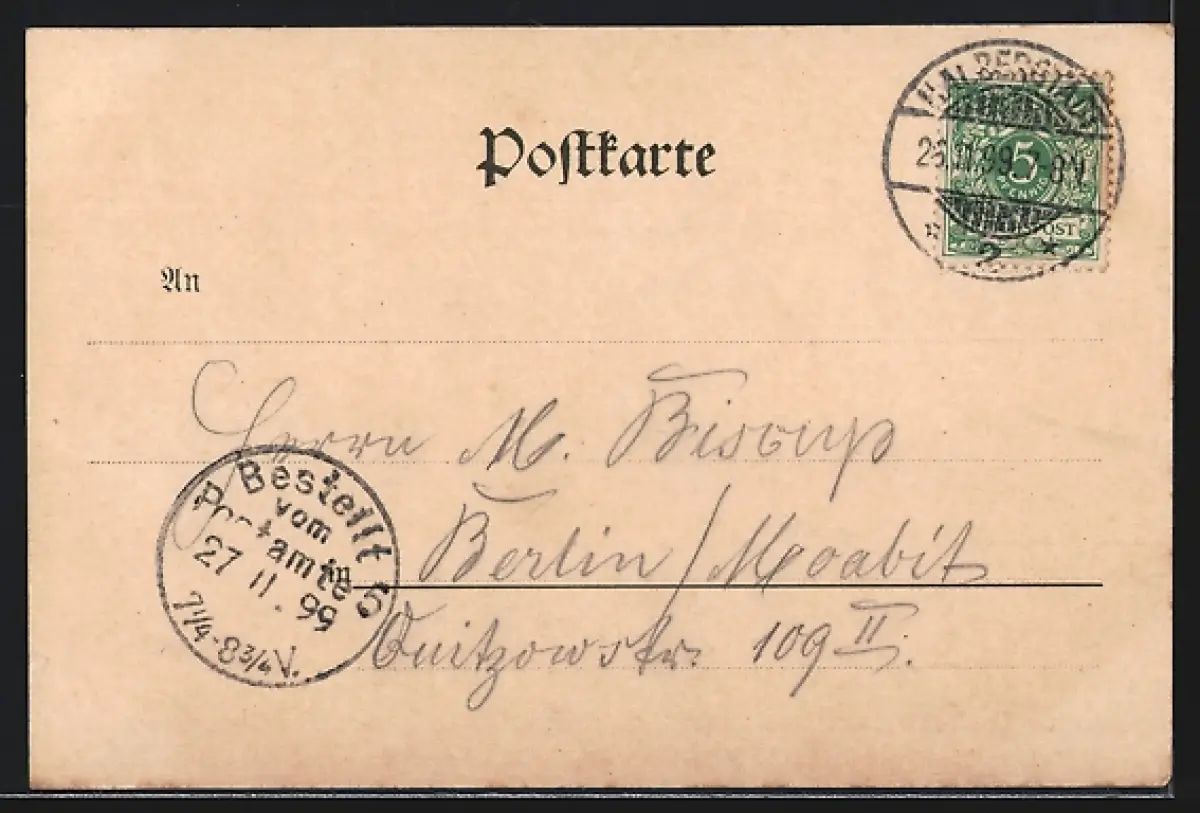 Postkarte
HALBERSTADT
26.11.99. 7-8V
* 2 *
5
PFENNIG
REICHSPOST
An
Herrn M. Biscup
Berlin / Moabit
Quitzowstr. 109 II.
Bestellt
vom
Postamte 5
27 11. 99
7 1/4-8 3/4 V.